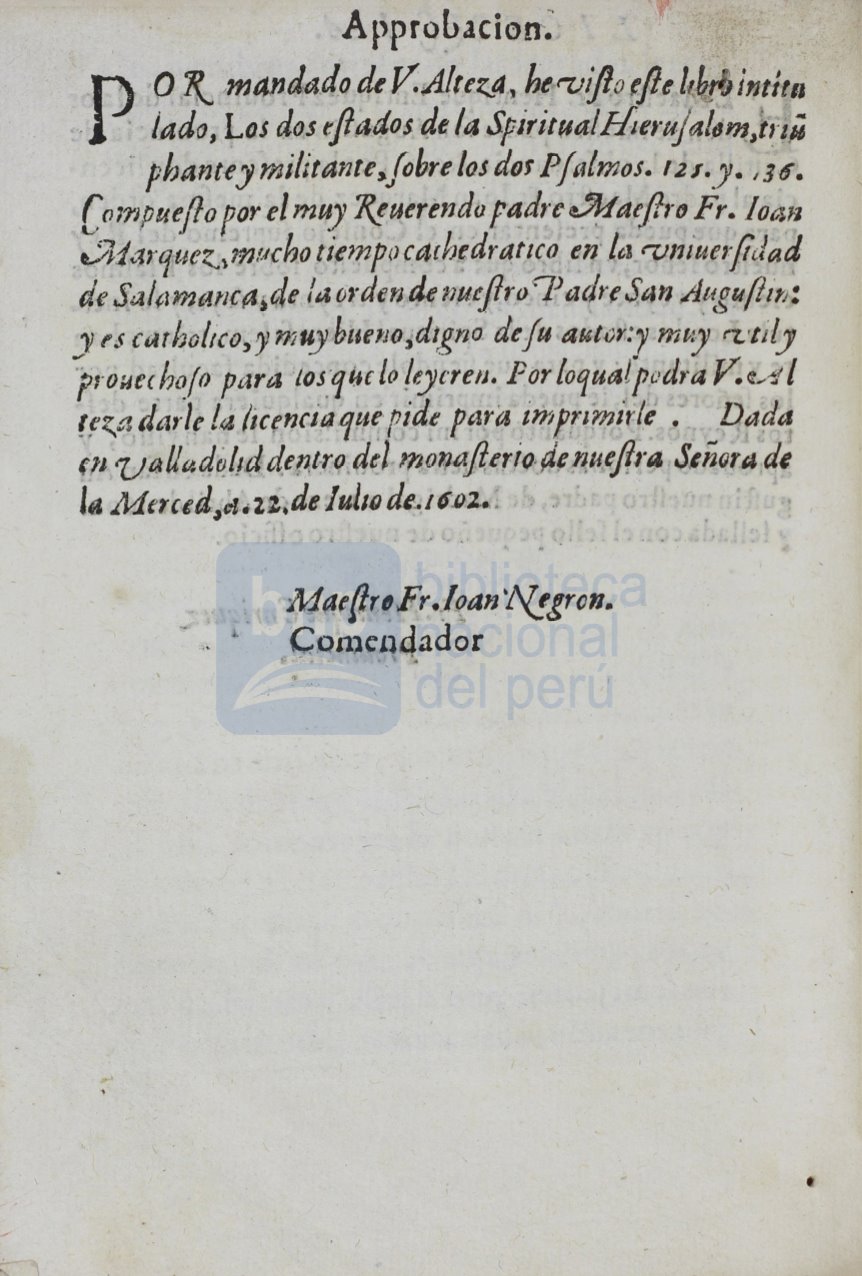 Approbacion.
POR mandado de V. Alteza, he visto este libro intitu
lado, Los dos estados de la Spiritual Hierusalem, triũ
phante y militante, sobre los dos Psalmos. 125. y. 136.
Compuesto por el muy Reuerendo padre Maestro Fr. Ioan
Marquez, mucho tiempo cathedratico en la vniuersidad
de Salamanca, de la orden de nuestro Padre San Augustin:
y es catholico, y muy bueno, digno de su autor: y muy vtil y
prouechoso para los que lo leyeren. Por lo qual podra V. Al
teza darle la licencia que pide para imprimirle . Dada
en Valladolid dentro del monasterio de nuestra Señora de
la Merced, a. 22. de Iulio de. 1602.
Maestro Fr. Ioan Negron.
Comendador
biblioteca
nacional
del perú